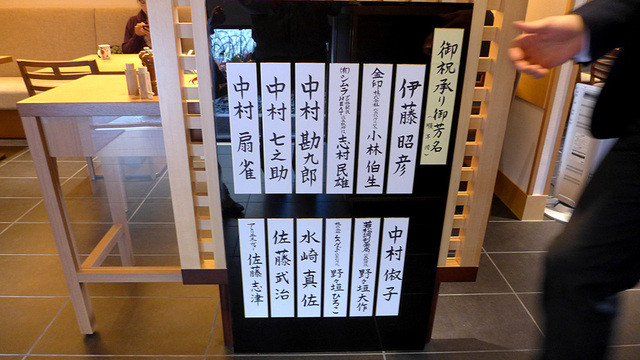 御祝承り御芳名
伊藤昭彦
金印 小林伯生
志村民雄
中村勘九郎
中村七之助
中村扇雀
中村俶子
野々垣大作
野々垣ひろこ
水崎真佐
佐藤武治
佐藤志津